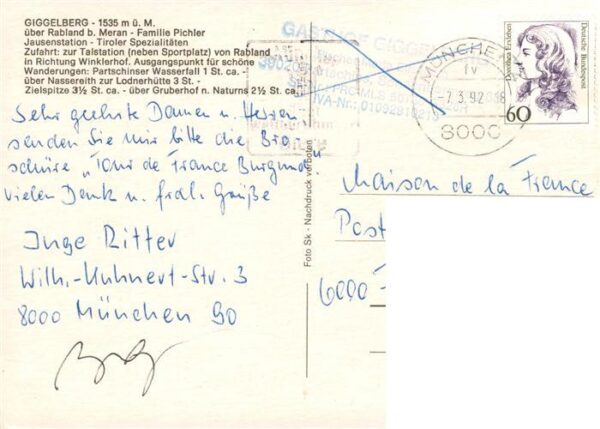 GIGGELBERG - 1535 m ü. M.
über Rabland b. Meran - Familie Pichler
Jausenstation - Tiroler Spezialitäten
Zufahrt: zur Talstation (neben Sportplatz) von Rabland
in Richtung Winklerhof. Ausgangspunkt für schöne
Wanderungen: Partschinser Wasserfall 1 St. ca. -
über Nassereith zur Lodnerhütte 3 St. -
Zielspitze 3½ St. - über Gruberhof n. Naturns 2½ St. ca.
Sehr geehrte Damen u. Herren,
senden Sie mir bitte die Bro-
schüre „Tour de France Burgund
vielen Dank u. frdl. Grüße
Inge Ritter
Wilh.-Kuhnert-Str. 3
8000 München 90
Foto Sk - Nachdruck verboten
GASTHOF GIGGEL
MÜNCHEN
IV
-7.3.92
8000
Dorothea Erxleben
Deutsche Bundespost
60
Maison de la France
Post
6000-